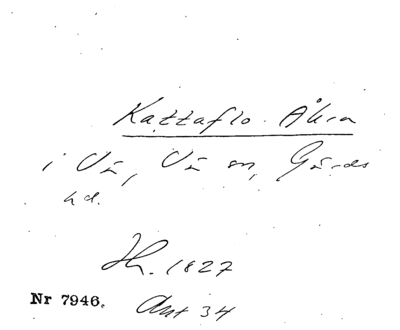 Kattaflo Åkra
i Vä, Vä sn, Gärds
hd.
Hh. 1827
Nr 7946. Akt 34